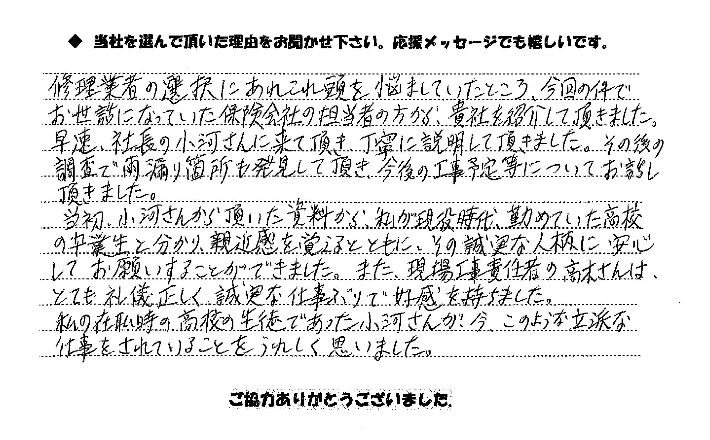 ◆ 当社を選んで頂いた理由をお聞かせ下さい。応援メッセージでも嬉しいです。
修理業者の選択にあれこれ頭を悩ましていたところ、今回の件で
お世話になっていた保険会社の担当者の方から、貴社を紹介して頂きました。
早速、社長の小河さんに来て頂き、丁寧に説明して頂きました。その後の
調査で雨漏り箇所も発見して頂き、今後の工事予定等についてお話し
頂きました。
当初、小河さんから頂いた資料から、私が現役時代、勤めていた高校
の卒業生と分かり、親近感を覚えるとともに、その誠実な人柄に安心
してお願いすることができました。また、現場工事責任者の高木さんは、
とても礼儀正しく誠実な仕事ぶりで好感を持ちました。
私の在職時の高校の生徒であった小河さんが今、このような立派な
仕事をされていることをうれしく思いました。
ご協力ありがとうございました。